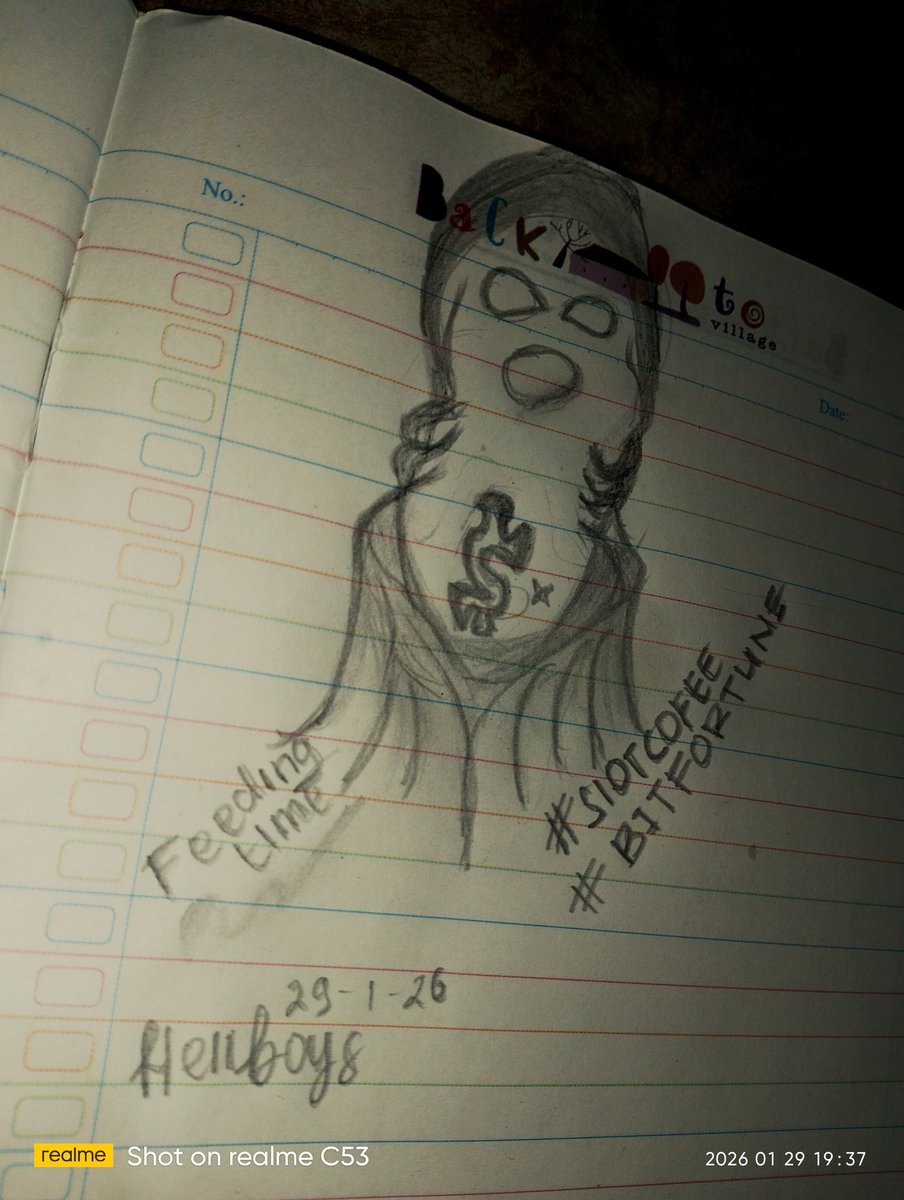 No.:
Back to
village
Date:
#SIOTCOFEE
# BITFORTUNE
Feeding
time
29-1-26
Hellboys
realme Shot on realme C53
2026 01 29 19:37